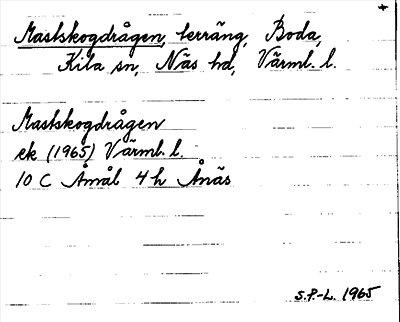 Mastskogdrågen, terräng, Boda,
Kila sn, Näs hd, Värml. l.
Mastskogdrågen
ek (1965) Värml. l.
10 C Åmål 4 h Ånäs
S.P-L. 1965